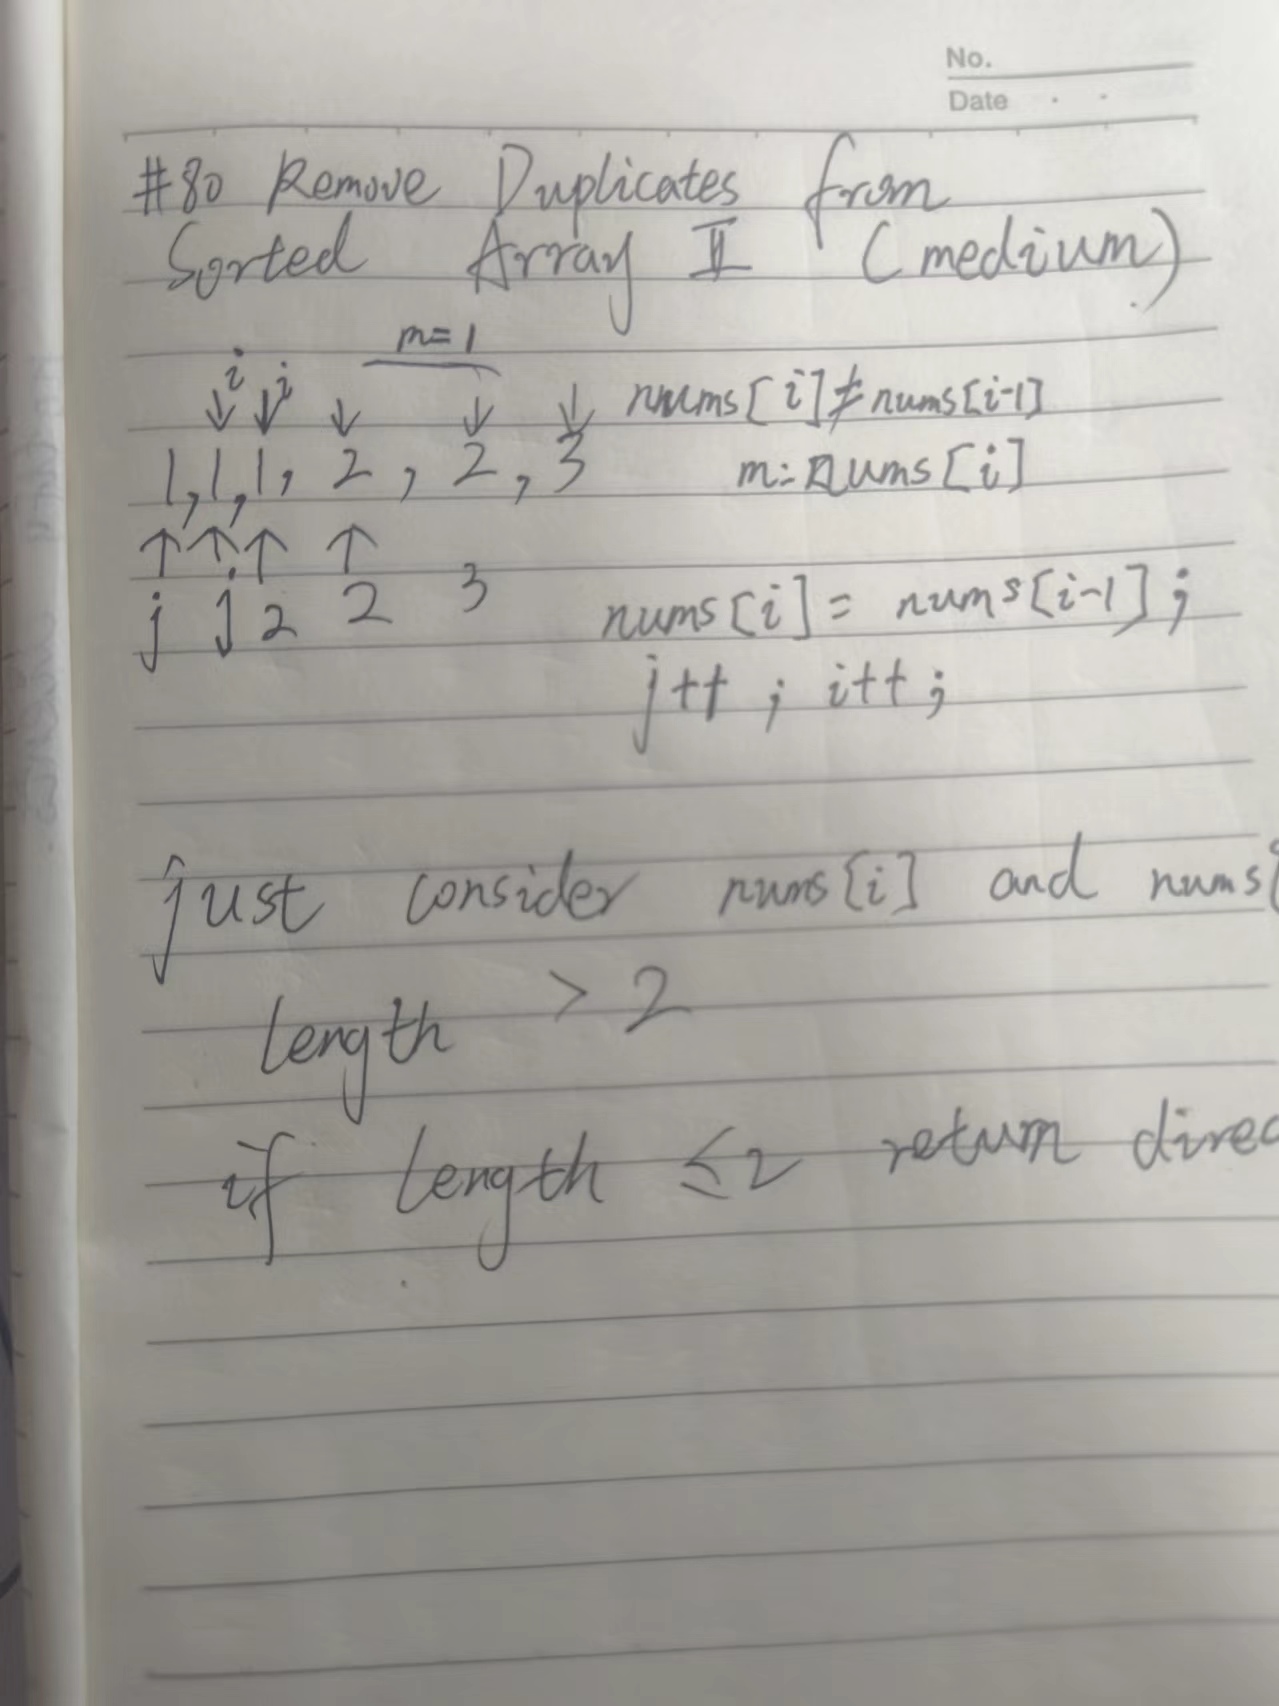 No.
Date
#80 Remove Duplicates from
Sorted Array II (medium)
m=1
i i
nums[i]≠nums[i-1]
1,1,1, 2, 2, 3
m=nums[i]
j j 2 2 3
nums[i] = nums[i-1];
j++ ; i++;
just consider nums[i] and nums[
length > 2
if length ≤2 return direc